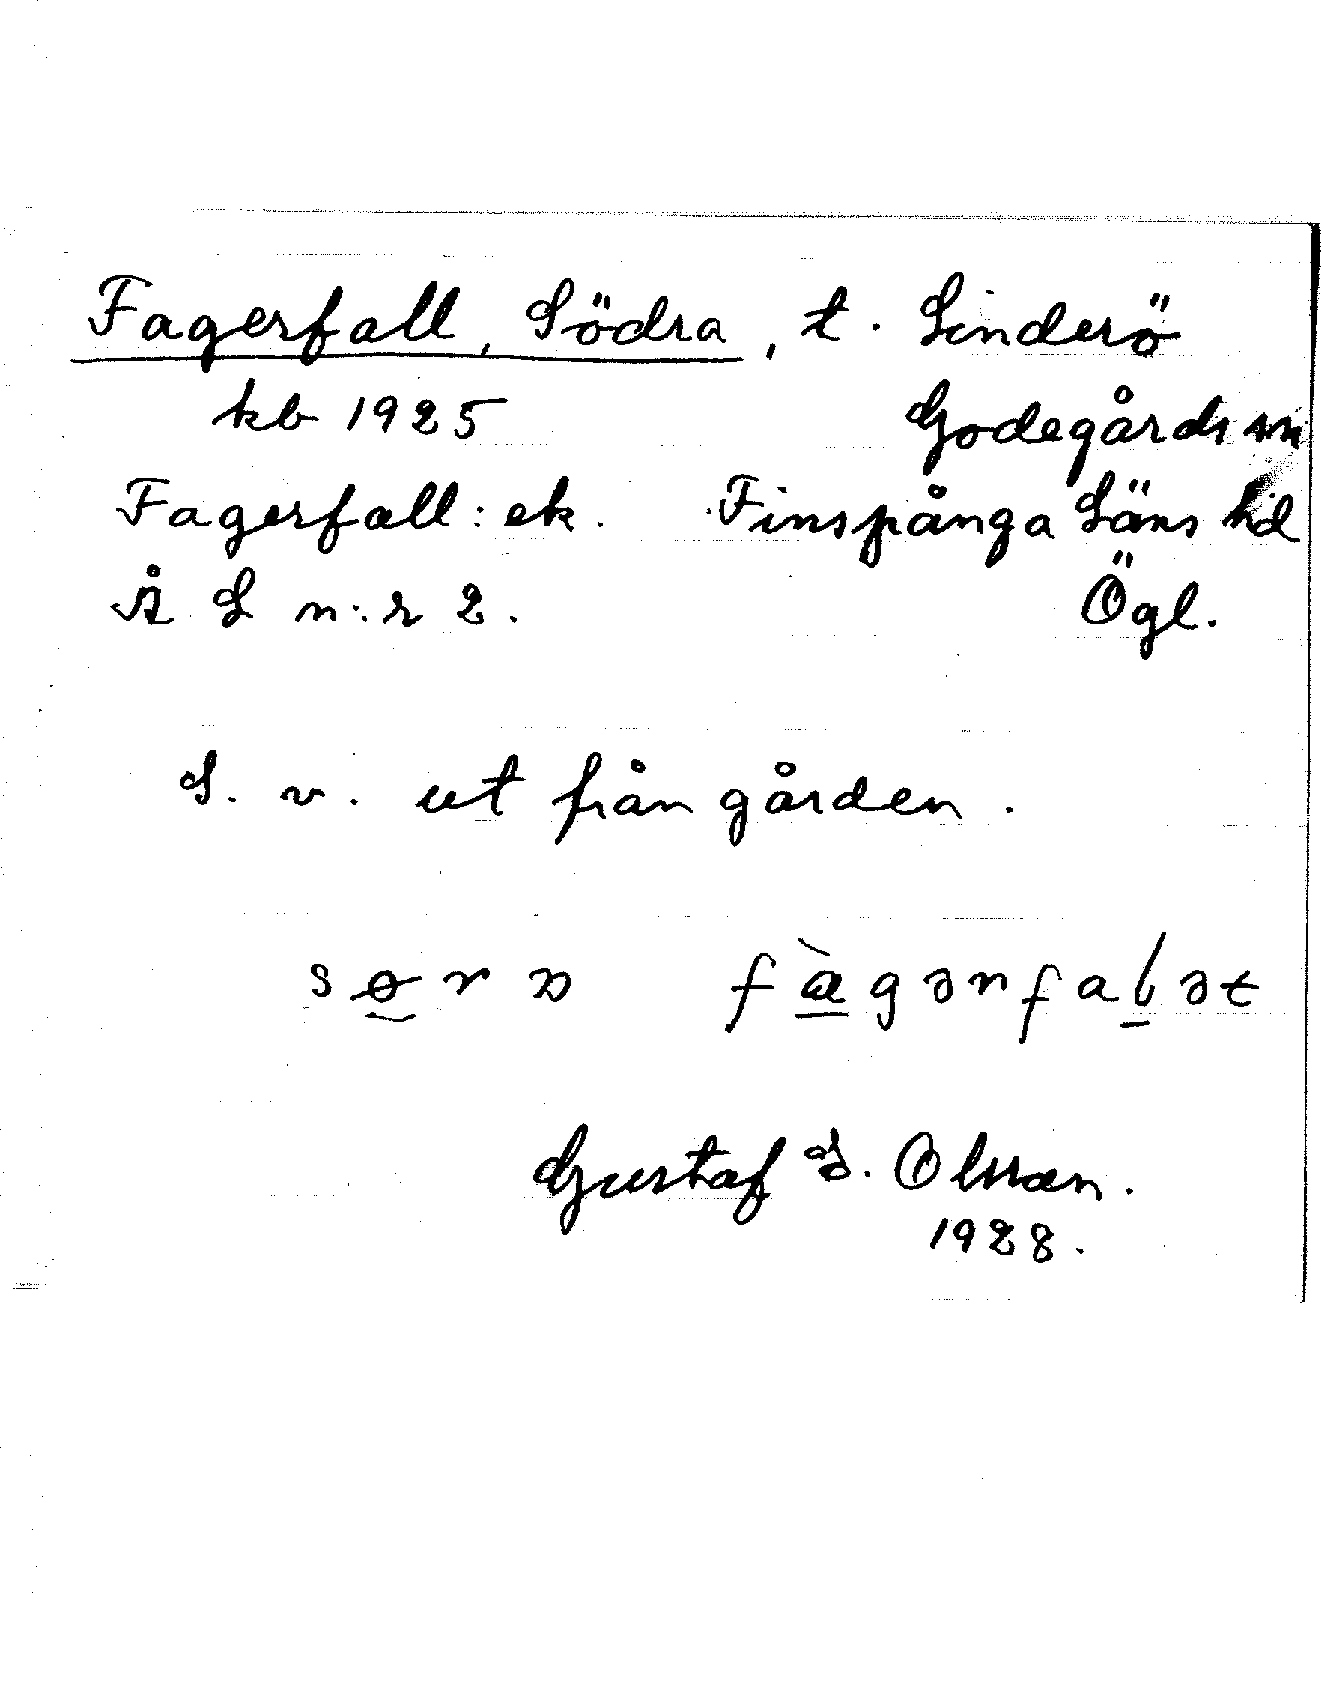 Fagerfall, Södra, t. Linderö
kb 1925 Godegårds sn
Fagerfall: ek. Finspånga Läns hd
Å L n:r 2. Ögl.
S. v. ut från gården.
Gustaf S. Olsson.
1928.